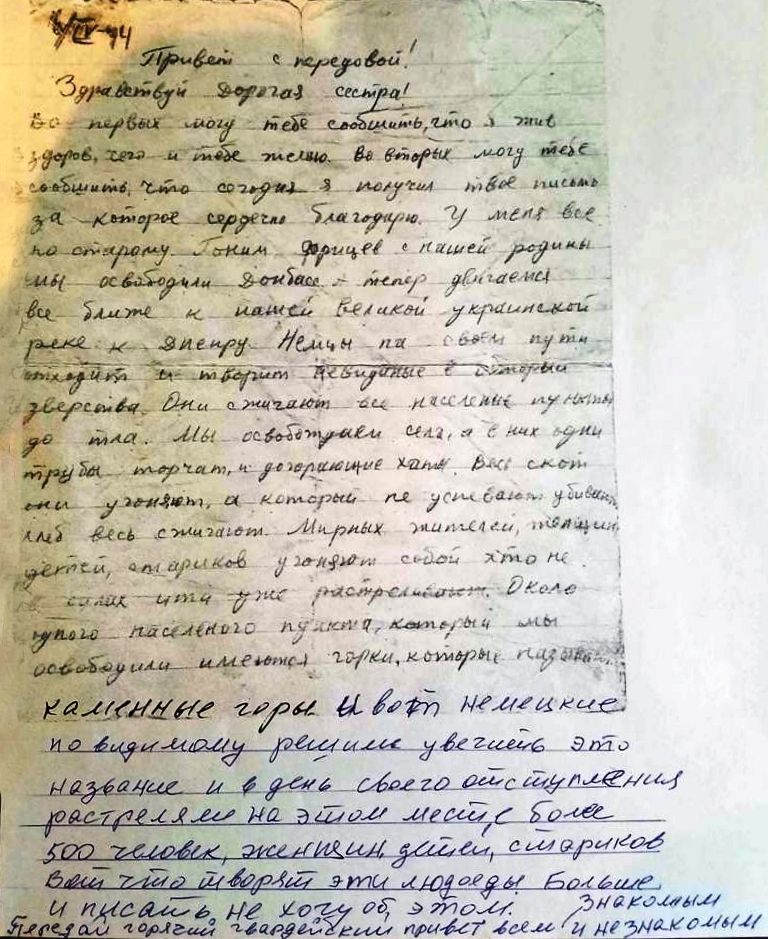 Привет с передовой!
Здравствуй Дорогая сестра!
Во первых могу тебе сообщить, что я жив
здоров, чего и тебе желаю. Во вторых могу тебе
сообщить, что сегодня я получил твое письмо
за которое сердечно благодарю. У меня все
по старому. Гоним фрицев с нашей родины
мы освободили Донбасс - тепер двигаемся
все ближе к нашей великой украинской
реке к Днепру Немцы на своем пути
отходит и творит невиданые в истории
зверства. Они сжигают все населеные пункты
до тла. Мы освобождаем села, а в них одни
трубы торчат, и догорающие хаты. Весь скот
они угоняют, а который не успевают убивают
хлеб весь сжигают. Мирных жителей, женщин
детей, стариков угоняют собой хто не
в силах ити уже растреливают. Около
одного населеного пункта, который мы
освободили имеются горки, которые называют
каменные горы И вот немецкие
по видимому решили увечить это
название и в день своего отступления
растреляли на этом месте более
500 человек, женщин, детей, стариков
Вот что творят эти людоеды Больше
и писать не хочу об этом.
Передай горячий гвардейский привет всем знакомым
и незнакомым